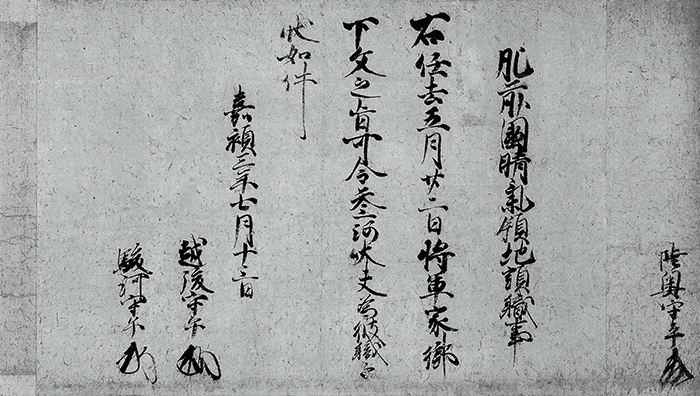 陸奥守平
肥前國晴氣領地頭職事
右任去五月廿二日将軍家御
下文之旨可令参河大夫為彼職之
状如件
嘉禎三年七月十三日
越後守平
駿河守平